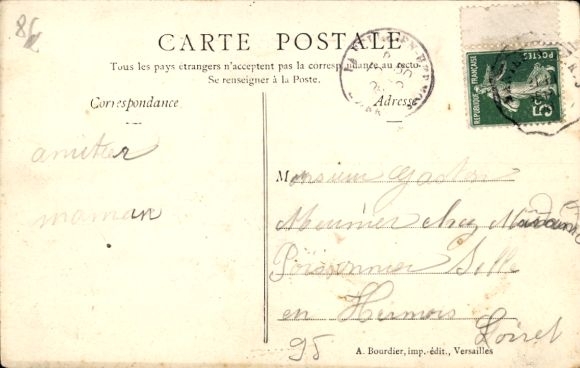 86
CARTE POSTALE
Tous les pays étrangers n'acceptent pas la correspondance au recto.
Se renseigner à la Poste.
Correspondance
Adresse
POSTES
5c
REPUBLIQUE FRANÇAISE
amitier
maman
Monsieur Gaston
Meunier chez Madame
Poissonnier Selle
en Hermois
Loiret
95
A. Bourdier, imp.-édit., Versailles